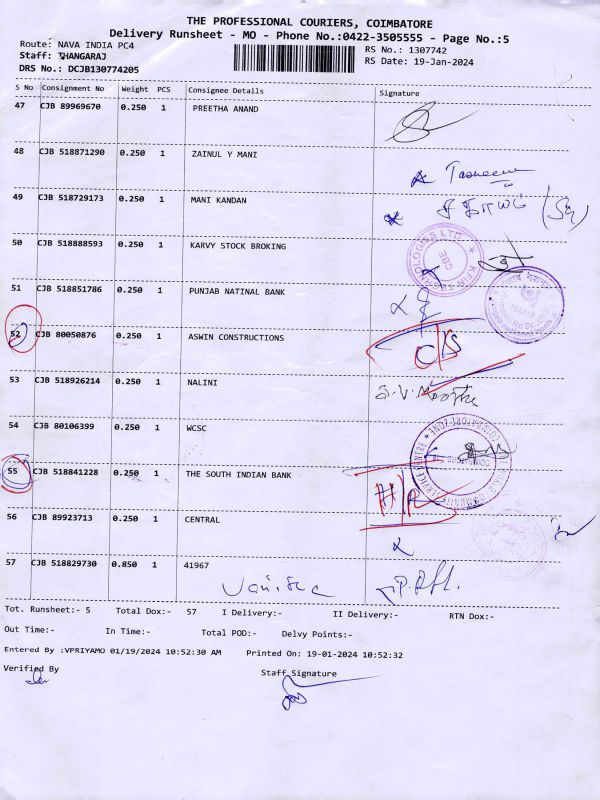 THE PROFESSIONAL COURIERS, COIMBATORE
Delivery Runsheet - MO - Phone No.:0422-3505555 - Page No.:5
Route: NAVA INDIA PC4 RS No.: 1307742
Staff: THANGARAJ RS Date: 19-Jan-2024
DRS No.: DCJB130774205
S No Consignment No Weight PCS Consignee Details Signature
47 CJB 89969670 0.250 1 PREETHA ANAND
48 CJB 518871290 0.250 1 ZAINUL Y MANI
Tasneem
49 CJB 518729173 0.250 1 MANI KANDAN
50 CJB 518888593 0.250 1 KARVY STOCK BROKING
CBE
51 CJB 518851786 0.250 1 PUNJAB NATINAL BANK
52 CJB 80050876 0.250 1 ASWIN CONSTRUCTIONS
O/S
53 CJB 518926214 0.250 1 NALINI
54 CJB 80106399 0.250 1 WCSC
55 CJB 518841228 0.250 1 THE SOUTH INDIAN BANK
56 CJB 89923713 0.250 1 CENTRAL
57 CJB 518829730 0.850 1 41967
Tot. Runsheet:- 5 Total Dox:- 57 I Delivery:- II Delivery:- RTN Dox:-
Out Time:- In Time:- Total POD:- Delvy Points:-
Entered By :VPRIYAMO 01/19/2024 10:52:30 AM Printed On: 19-01-2024 10:52:32
Verified By Staff Signature